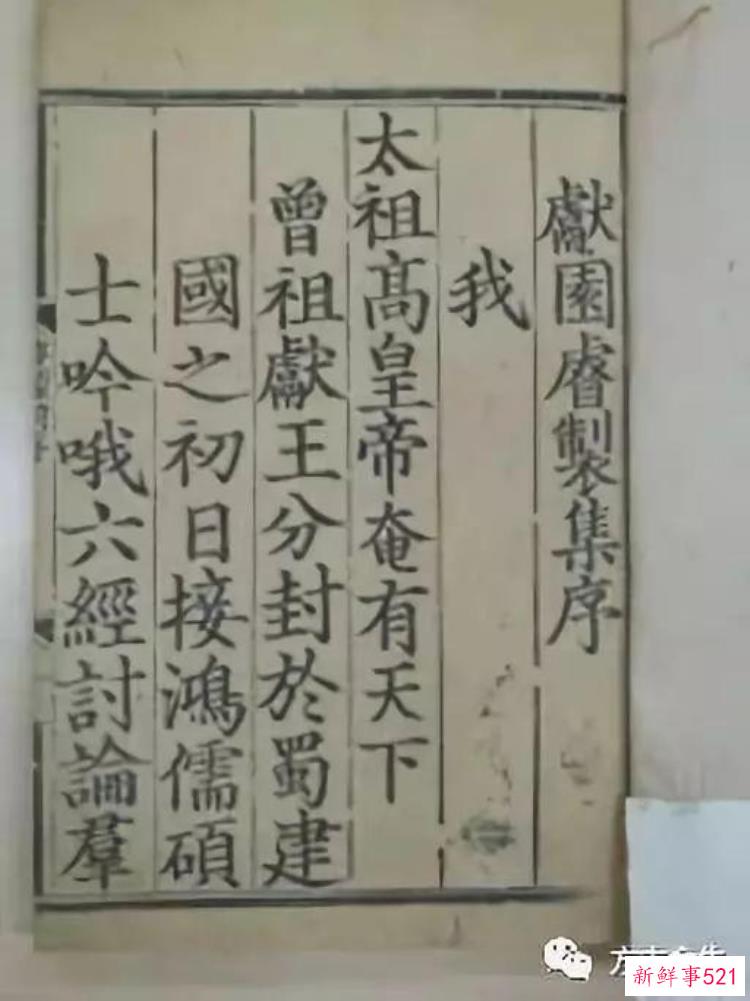 獻園睿製集序
我
太祖高皇帝奄有天下
曾祖獻王分封於蜀建
國之初日接鴻儒碩
士吟哦六經討論羣
新鲜事521